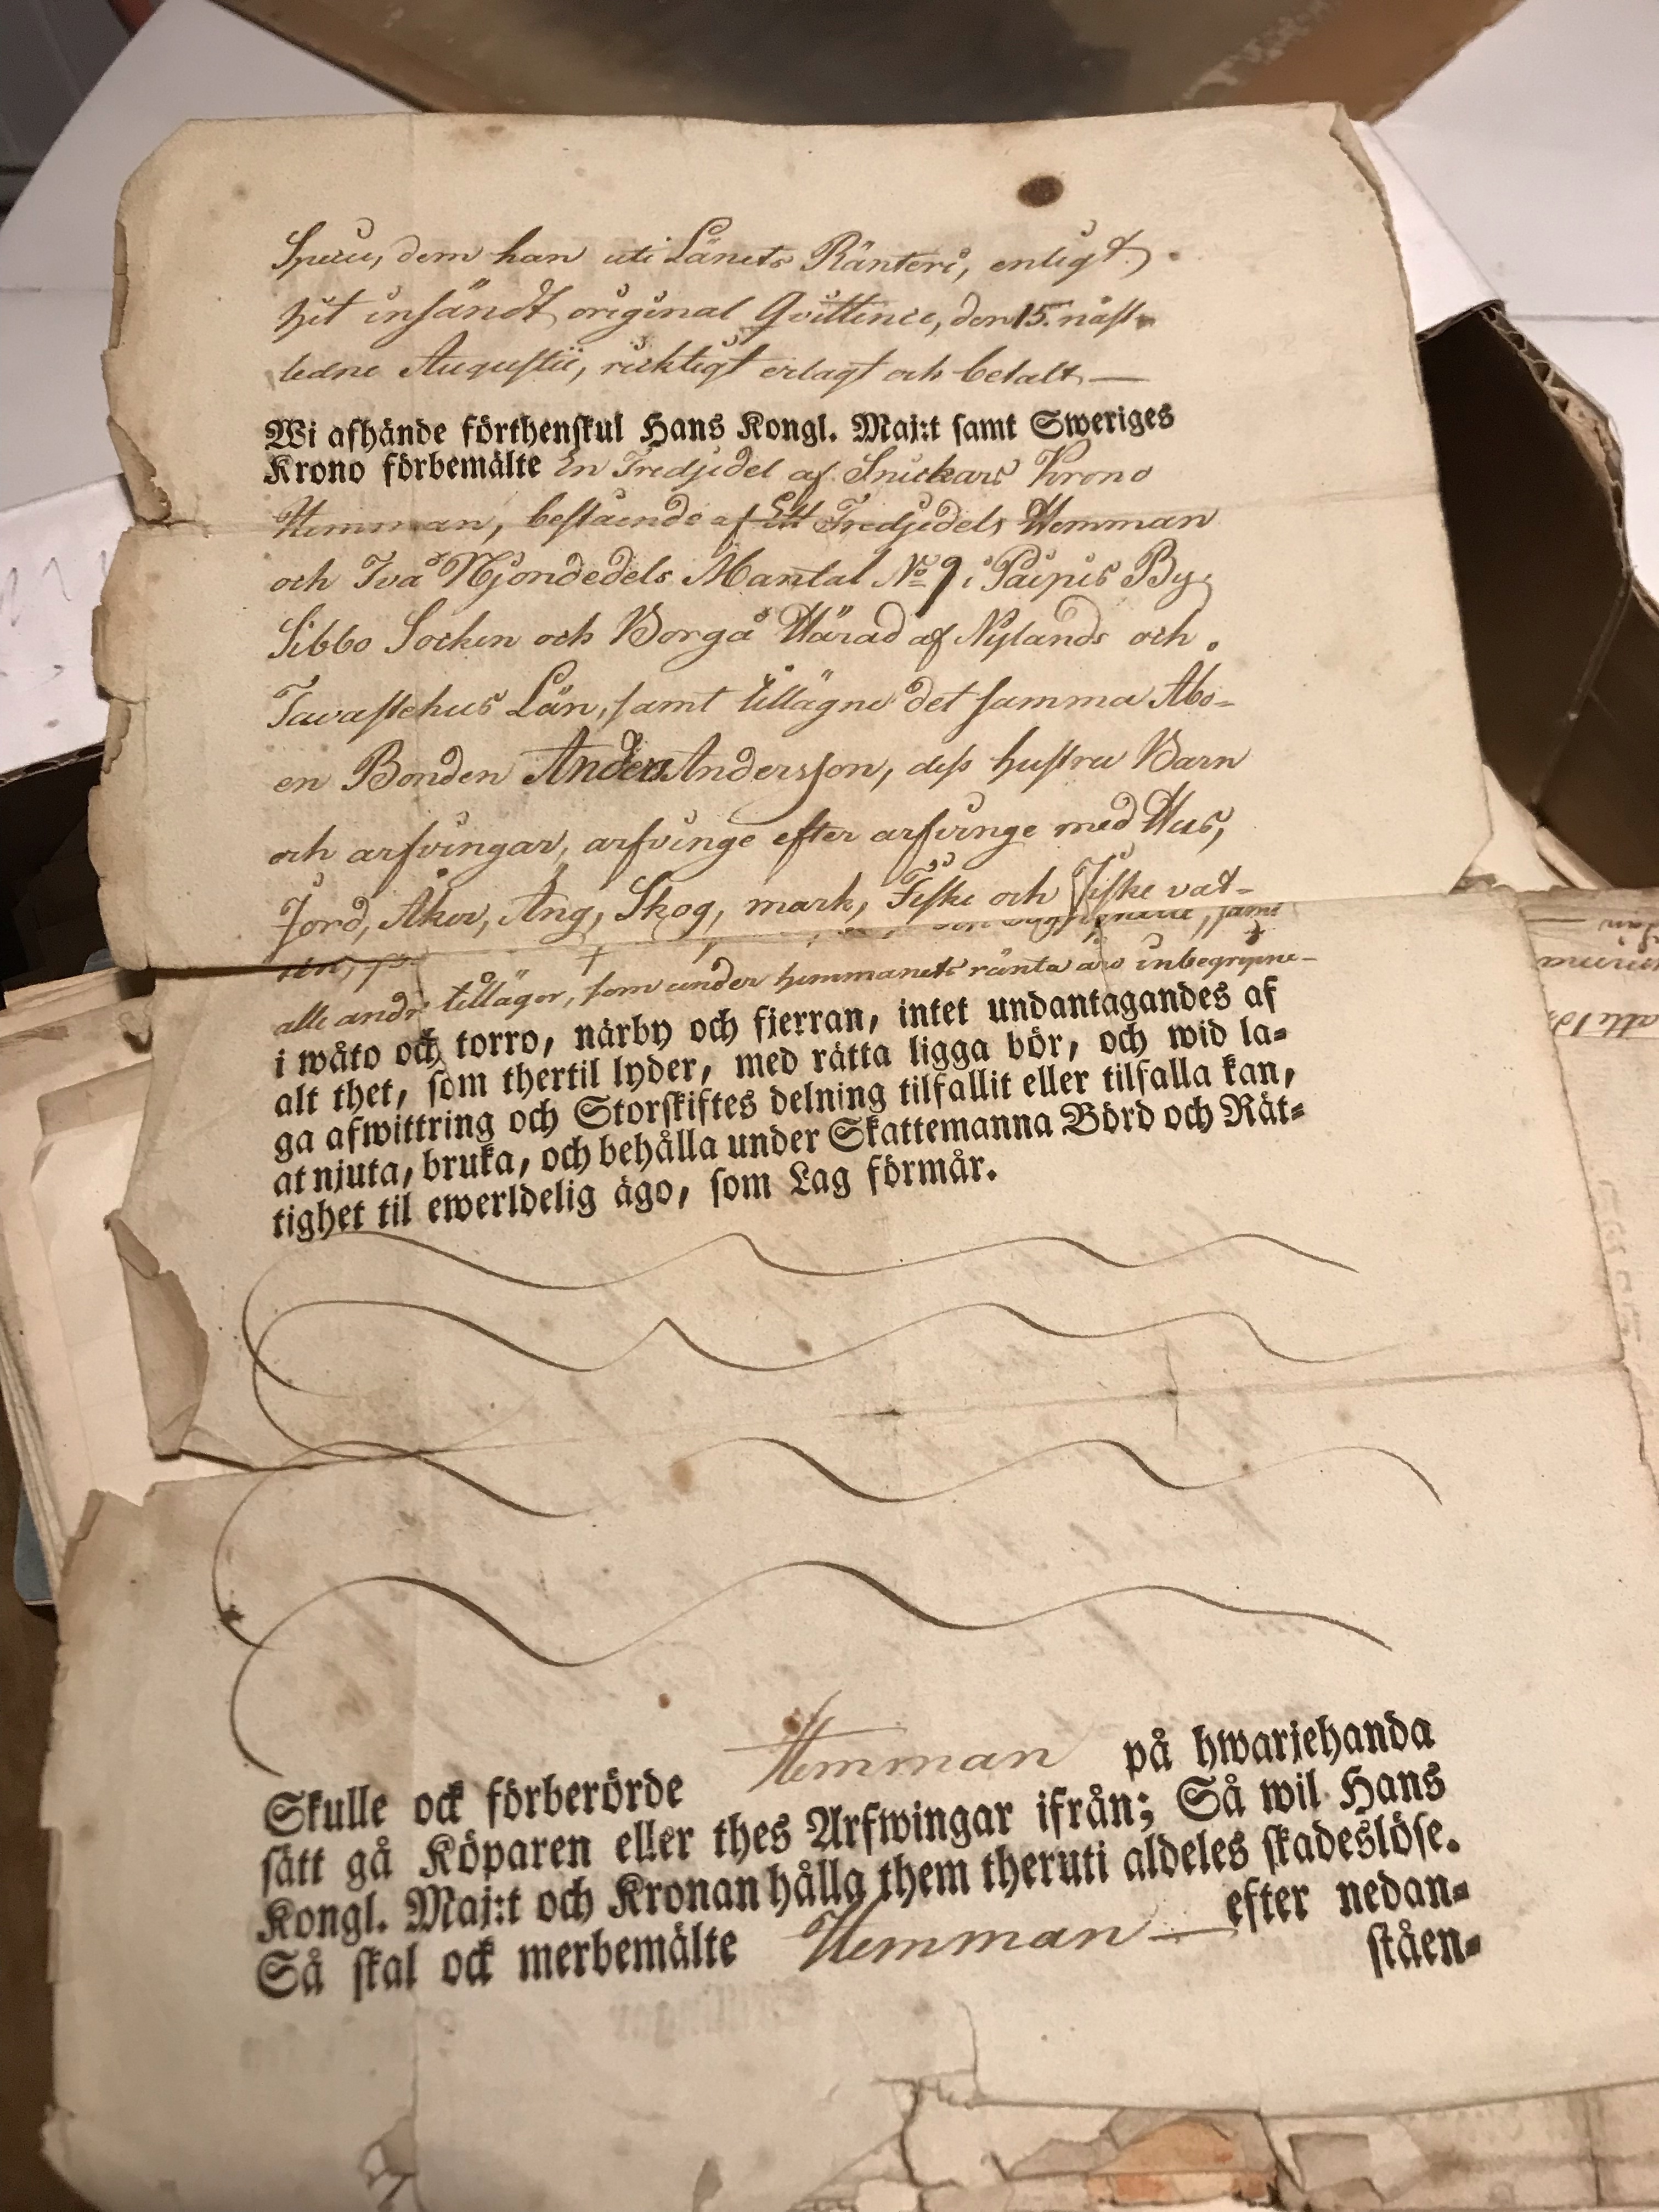 Specie, dem han uti Länets Ränteri, enligt
hit insändt original Qvittence, den 15. näst-
ledne Augustii, richtigt erlagt och betalt
Wi afhände förthenskul Hans Kongl. Maj:t samt Sweriges
Krono förbemälte En Tredjedel af Snickars Krono
Hemman, bestående af Ett Tredjedels Hemman
och Två Njondedels Mantal No 9 i Paipis By,
Sibbo Socken och Borgå Härad af Nylands och
Tavastehus Län, samt tillägne det samma Åbo-
en Bonden Anders Andersson, dess hustru Barn
och arfvingar, arfvinge efter arfvinge med Hus,
Jord, Åker, Äng, Skog, mark, Fiske och Fiske vat-
samt
alle andr tillägor, som under hemmanets ränta äro inbegripne
i wåto och torro, närby och fjerran, intet undantagandes af
alt thet, som thertil lyder, med rätta ligga bör, och wid la-
ga afwittring och Storskiftes delning tilfallit eller tilfalla kan,
at njuta, bruka, och behålla under Skattemanna Börd och Rät-
tighet til ewerldelig ägo, som Lag förmår.
Skulle ock förberörde Hemman på hwarjehanda
sätt gå Köparen eller thes Arfwingar ifrån; Så wil Hans
Kongl. Maj:t och Kronan hålla them theruti aldeles skadeslöse.
Så skal ock merbemälte Hemman efter nedan-
ståen-